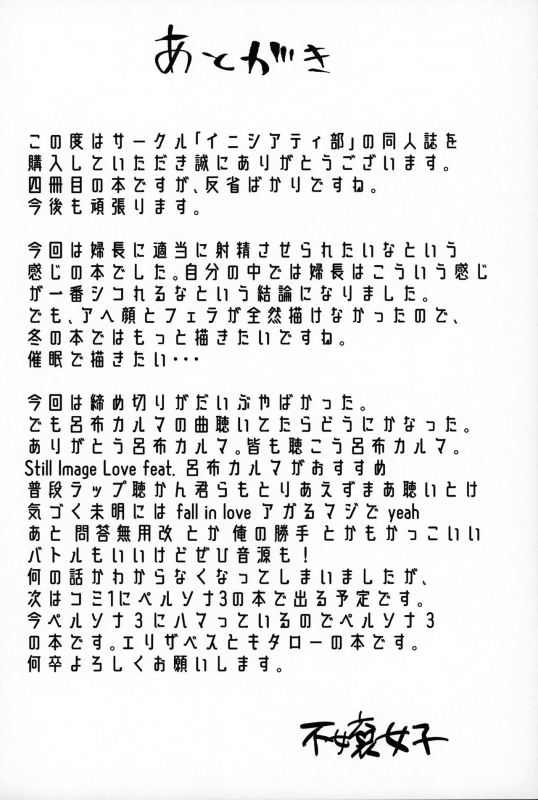 あとがき
この度はサークル「イニシアティ部」の同人誌を
購入していただき誠にありがとうございます。
四冊目の本ですが、反省ばかりですね。
今後も頑張ります。
今回は婦長に適当に射精させられたいなという
感じの本でした。自分の中では婦長はこういう感じ
が一番シコれるなという結論になりました。
でも、アヘ顔とフェラが全然描けなかったので、
冬の本ではもっと描きたいですね。
催眠で描きたい・・・
今回は締め切りがだいぶやばかった。
でも呂布カルマの曲聴いてたらどうにかなった。
ありがとう呂布カルマ。皆も聴こう呂布カルマ。
Still Image Love feat. 呂布カルマがおすすめ
普段ラップ聴かん君らもとりあえずまあ聴いとけ
気づく未明には fall in love アガるマジで yeah
あと 問答無用改 とか 俺の勝手 とかもかっこいい
バトルもいいけどぜひ音源も!
何の話かわからなくなってしまいましたが、
次はコミ1にペルソナ3の本で出る予定です。
今ペルソナ3にハマっているのでペルソナ3
の本です。エリザベスとキタローの本です。
何卒よろしくお願いします。
不嬢女子